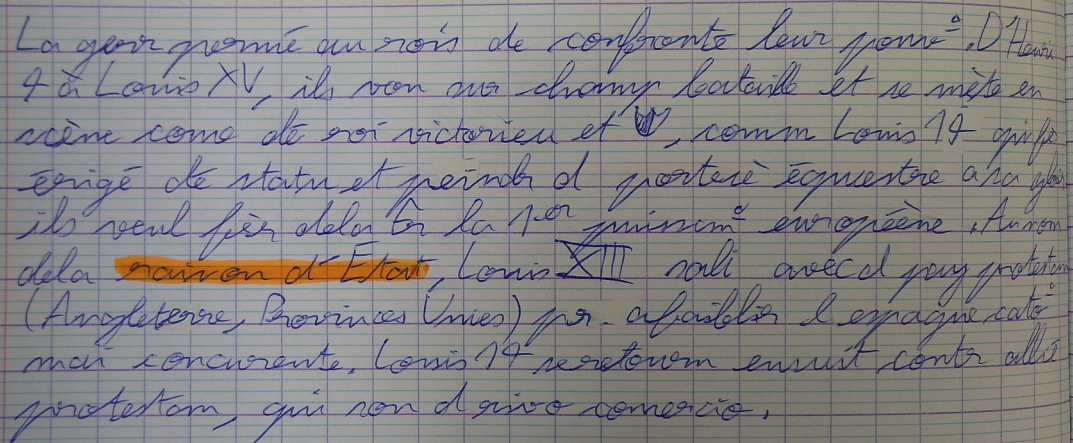 La gerr permé au rois de confronté leur ponvᵉ. D'Henri
4 à Louis XV, ils von sur champ bataille et se mète en
scène come de roi victorieu et, comm Louis 14 qui
érigé de statu et peindr d porterè équestre a sa
ils veul fèr dela Fr la 1er puissmᵉ européène. Au nom
dela raison d'État, Louis XIII sali avec d pay protestan
(Angleterre, Provinces Unies) pr afaiblir l espagne catoᵉ
mai concurente. Louis 14 se retourn ensuit contr allié
protestan, qui son d rivo comercio.